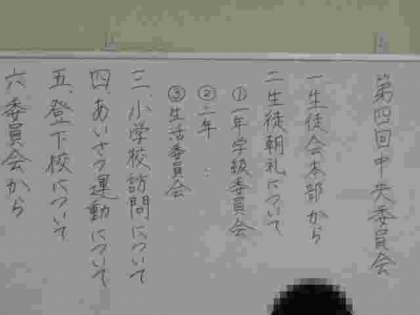 第四回中央委員会
一生徒会本部から
二生徒朝礼について
①一年学級委員会
②二年 〃
③生活委員会
三、小学校訪問について
四、あいさつ運動について
五、登下校について
六委員会から